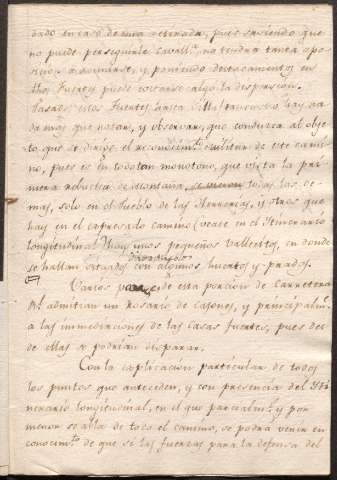 dado en caso de una retirada, pues sabiendo que
no puede perseguirle Cavall.ª no tendra tanta opo
sicion a avivarse, y poniendo destacamentos en
dhos Fuertes puede cortarse algo la despersion.
Pasados estos Fuertes hasta Villafranca no hay na
da mas que notar, y observar, que conduzca al obje
to, que se dirige el reconocim.to militar de este cami
no, pues es en todo tan monotono, que vista la pri
mera rebuelta de montaña, se vieron todas las de
mas, solo en el Pueblo de las Herrerias, y otros que
hay en el expresado camino (vease en el Itinerario
longitudinal) hay unos pequeños Vallecitos, en donde
se hallan situados con algunos huertos y prados.
Varios de esta porcion de Carretera
R.l admitian un rosario de cajones, y principalm.te
a las inmediaciones de las Casas fuertes, pues des
de ellas se podrian disparar.
Con la explicacion particular de todos
los puntos que anteceden, y con presencia del Iti
nerario longitudinal, en el que parcialm.te y por
menor se abla de todo el camino, se podrá venir en
conocim.to de que si las fuerzas para la defensa del